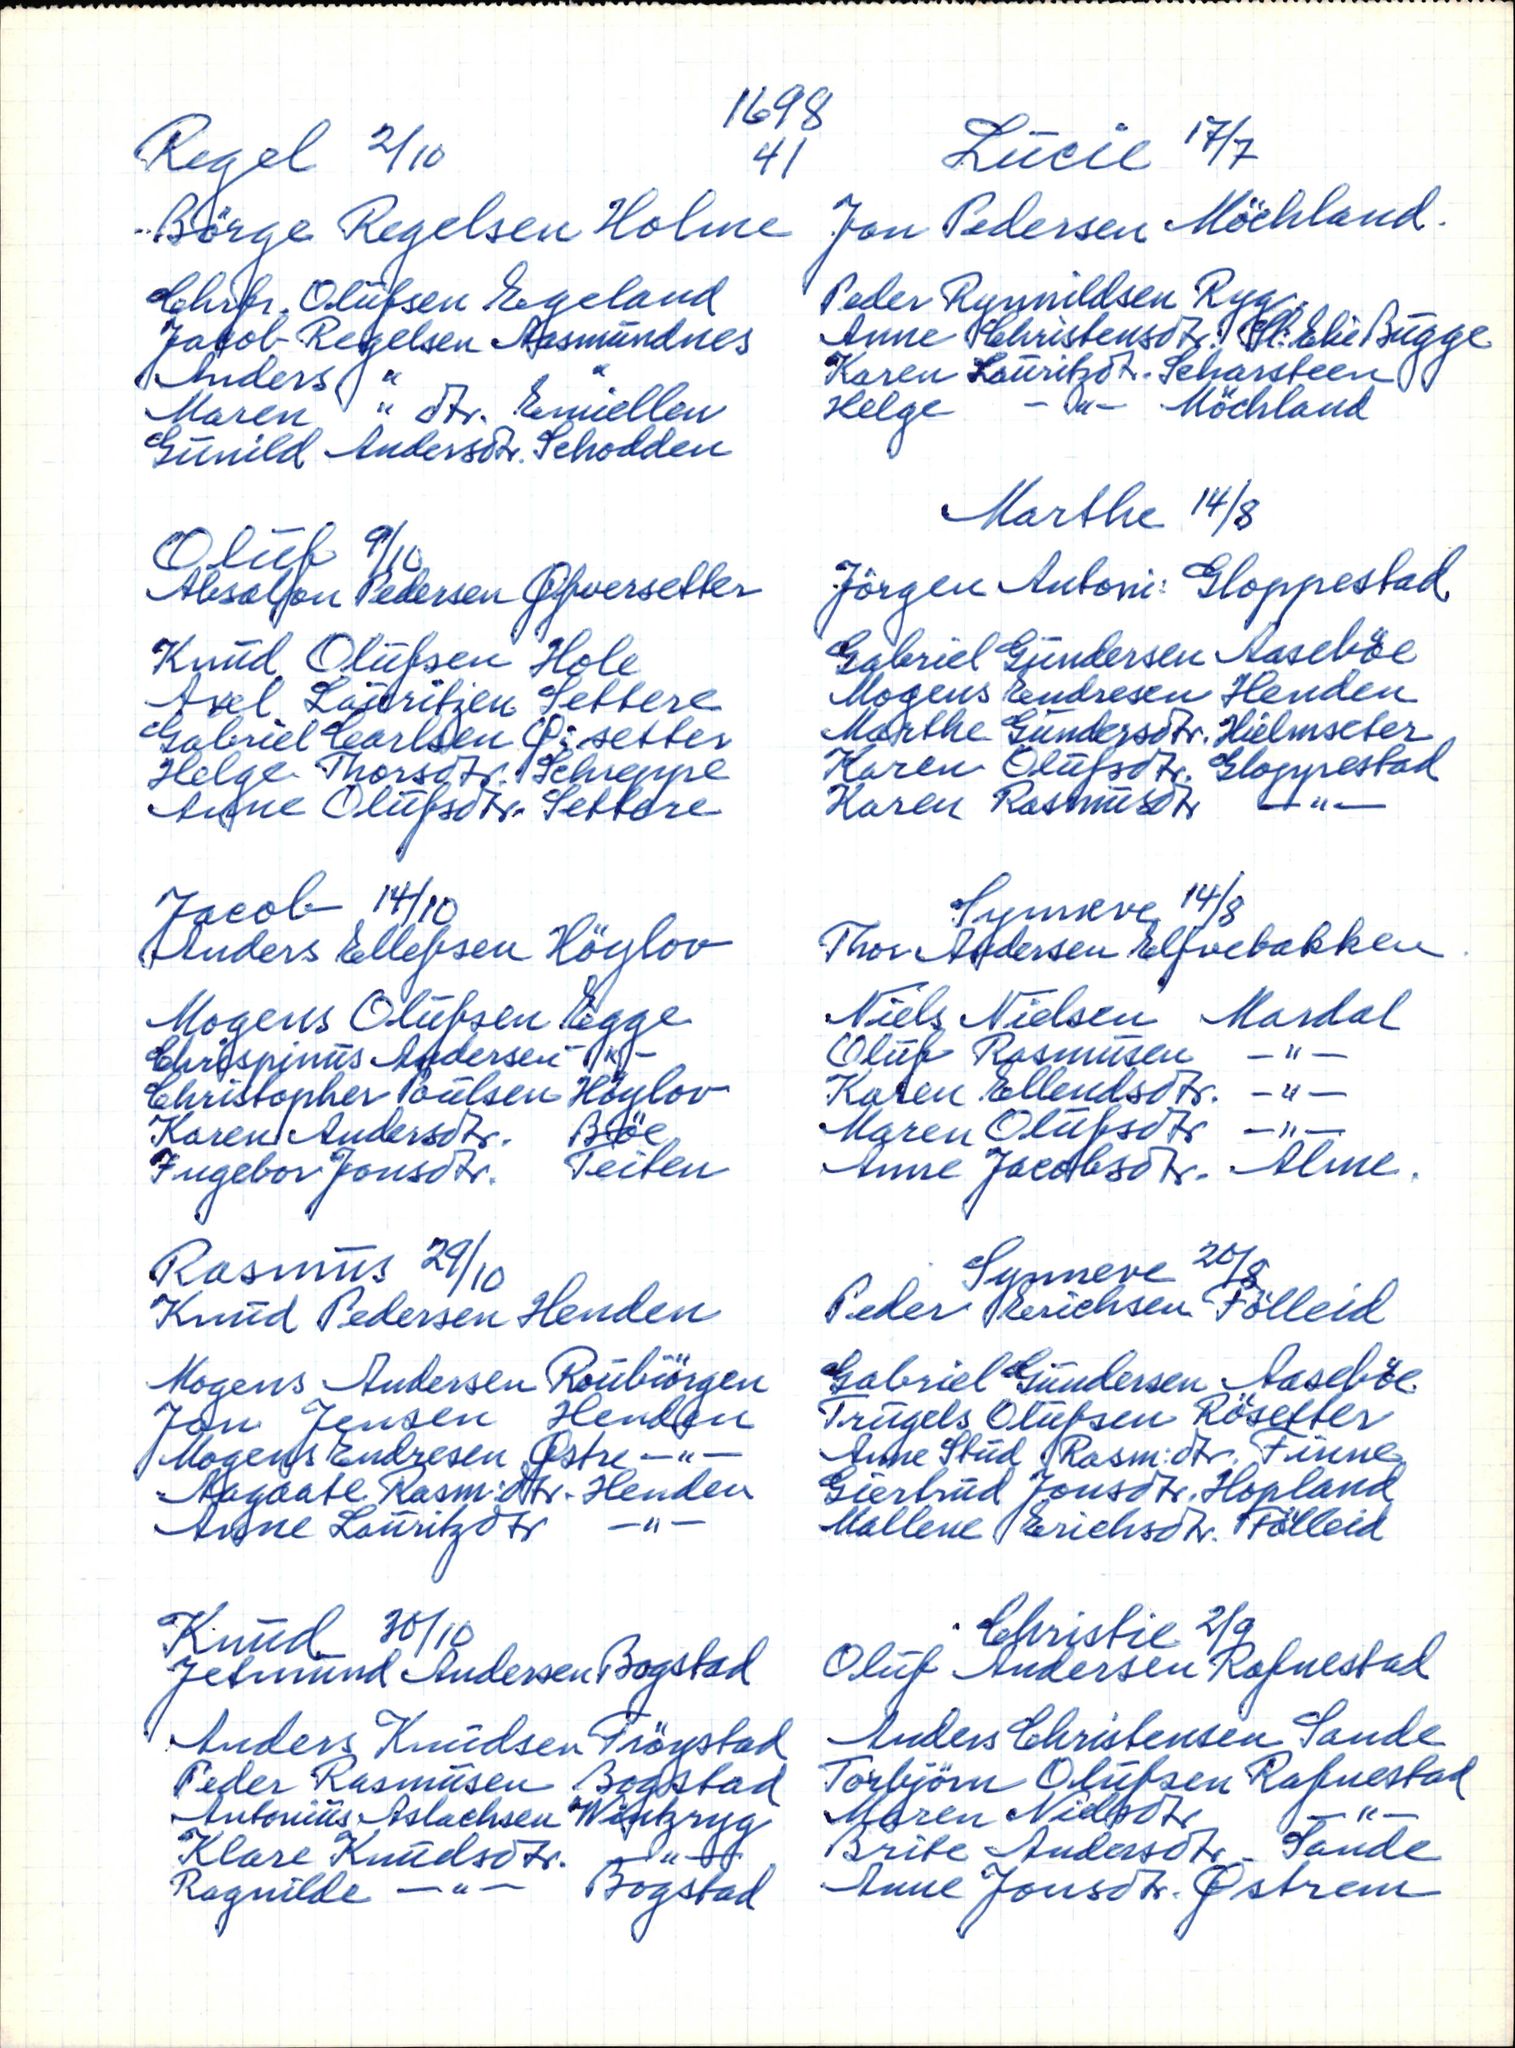 1698
41
Regel 2/10
Börge Regelsen Holme
Chrfr. Olüfsen Egeland
Jacob Regelsen Aasmündnes
Anders " "
Maren " dtr. Emiellen
Günild Andersdtr. Schodden
Olüf 9/10
Absalon Pedersen Øfversetter
Knüd Olüfsen Hole
Axel Laüritzen Settere
Gabriel Carlsen Ø: setter
Helge Thorsdtr. Schreppe
Anne Olüfsdtr. Settere
Jacob 14/10
Anders Ellefsen Höylov
Mogens Olüfsen Egge
Chrispinüs Andersen — " —
Christopher Poülsen Höylov
Karen Andersdtr. Böe
Ingebor Jonsdtr. Teiten
Rasmüs 29/10
Knüd Pedersen Henden
Mogens Andersen Roübiörgen
Jon Jensen Henden
Mogens Endresen Østre — " —
Aagaate Rasm:dtr. Henden
Anne Laüritzdtr — " —
Knüd 30/10
Jetmünd Andersen Bogstad
Anders Knüdsen Fröystad
Peder Rasmüsen Bogstad
Antoniüs Aslachsen Wintzryg
Klare Knüdsdtr. — " —
Ragnilde — " — Bogstad
Lücie 17/7
Jon Pedersen Möchland.
Peder Rynnildsen Ryg.
Anne Christensdtr. Sl. Elie Bügge
Karen Laüritzdtr. Scharsteen
Helge — " — Möchland
Marthe 14/8
Jörgen Antoni: Gloppestad
Gabriel Gündersen Aaseböe
Mogens Endresen Henden
Marthe Gündersdtr. Hielmseter
Karen Olüfsdtr. Gloppestad
Karen Rasmüsdtr — " —
Synneve 14/8
Thor Andersen Elfvebakken
Niels Nielsen Mardal
Olüf Rasmüsen — " —
Karen Ellendsdtr. — " —
Maren Olüfsdtr — " —
Anne Jacobsdtr. Alme.
Synneve 20/8
Peder Erichsen Fölleid
Gabriel Gündersen Aaseböe
Trügels Olüfsen Rösetter
Anne Stüd Rasm:dtr. Finne
Giertrüd Jonsdtr. Hopland
Mallene Erichsdtr. Fölleid
Christie 2/9
Olüf Andersen Rafnestad
Anders Christensen Sande
Torbjörn Olüfsen Rafnestad
Maren Nielsdtr — " —
Brite Andersdtr. Sande
Anne Jonsdtr. Østrem